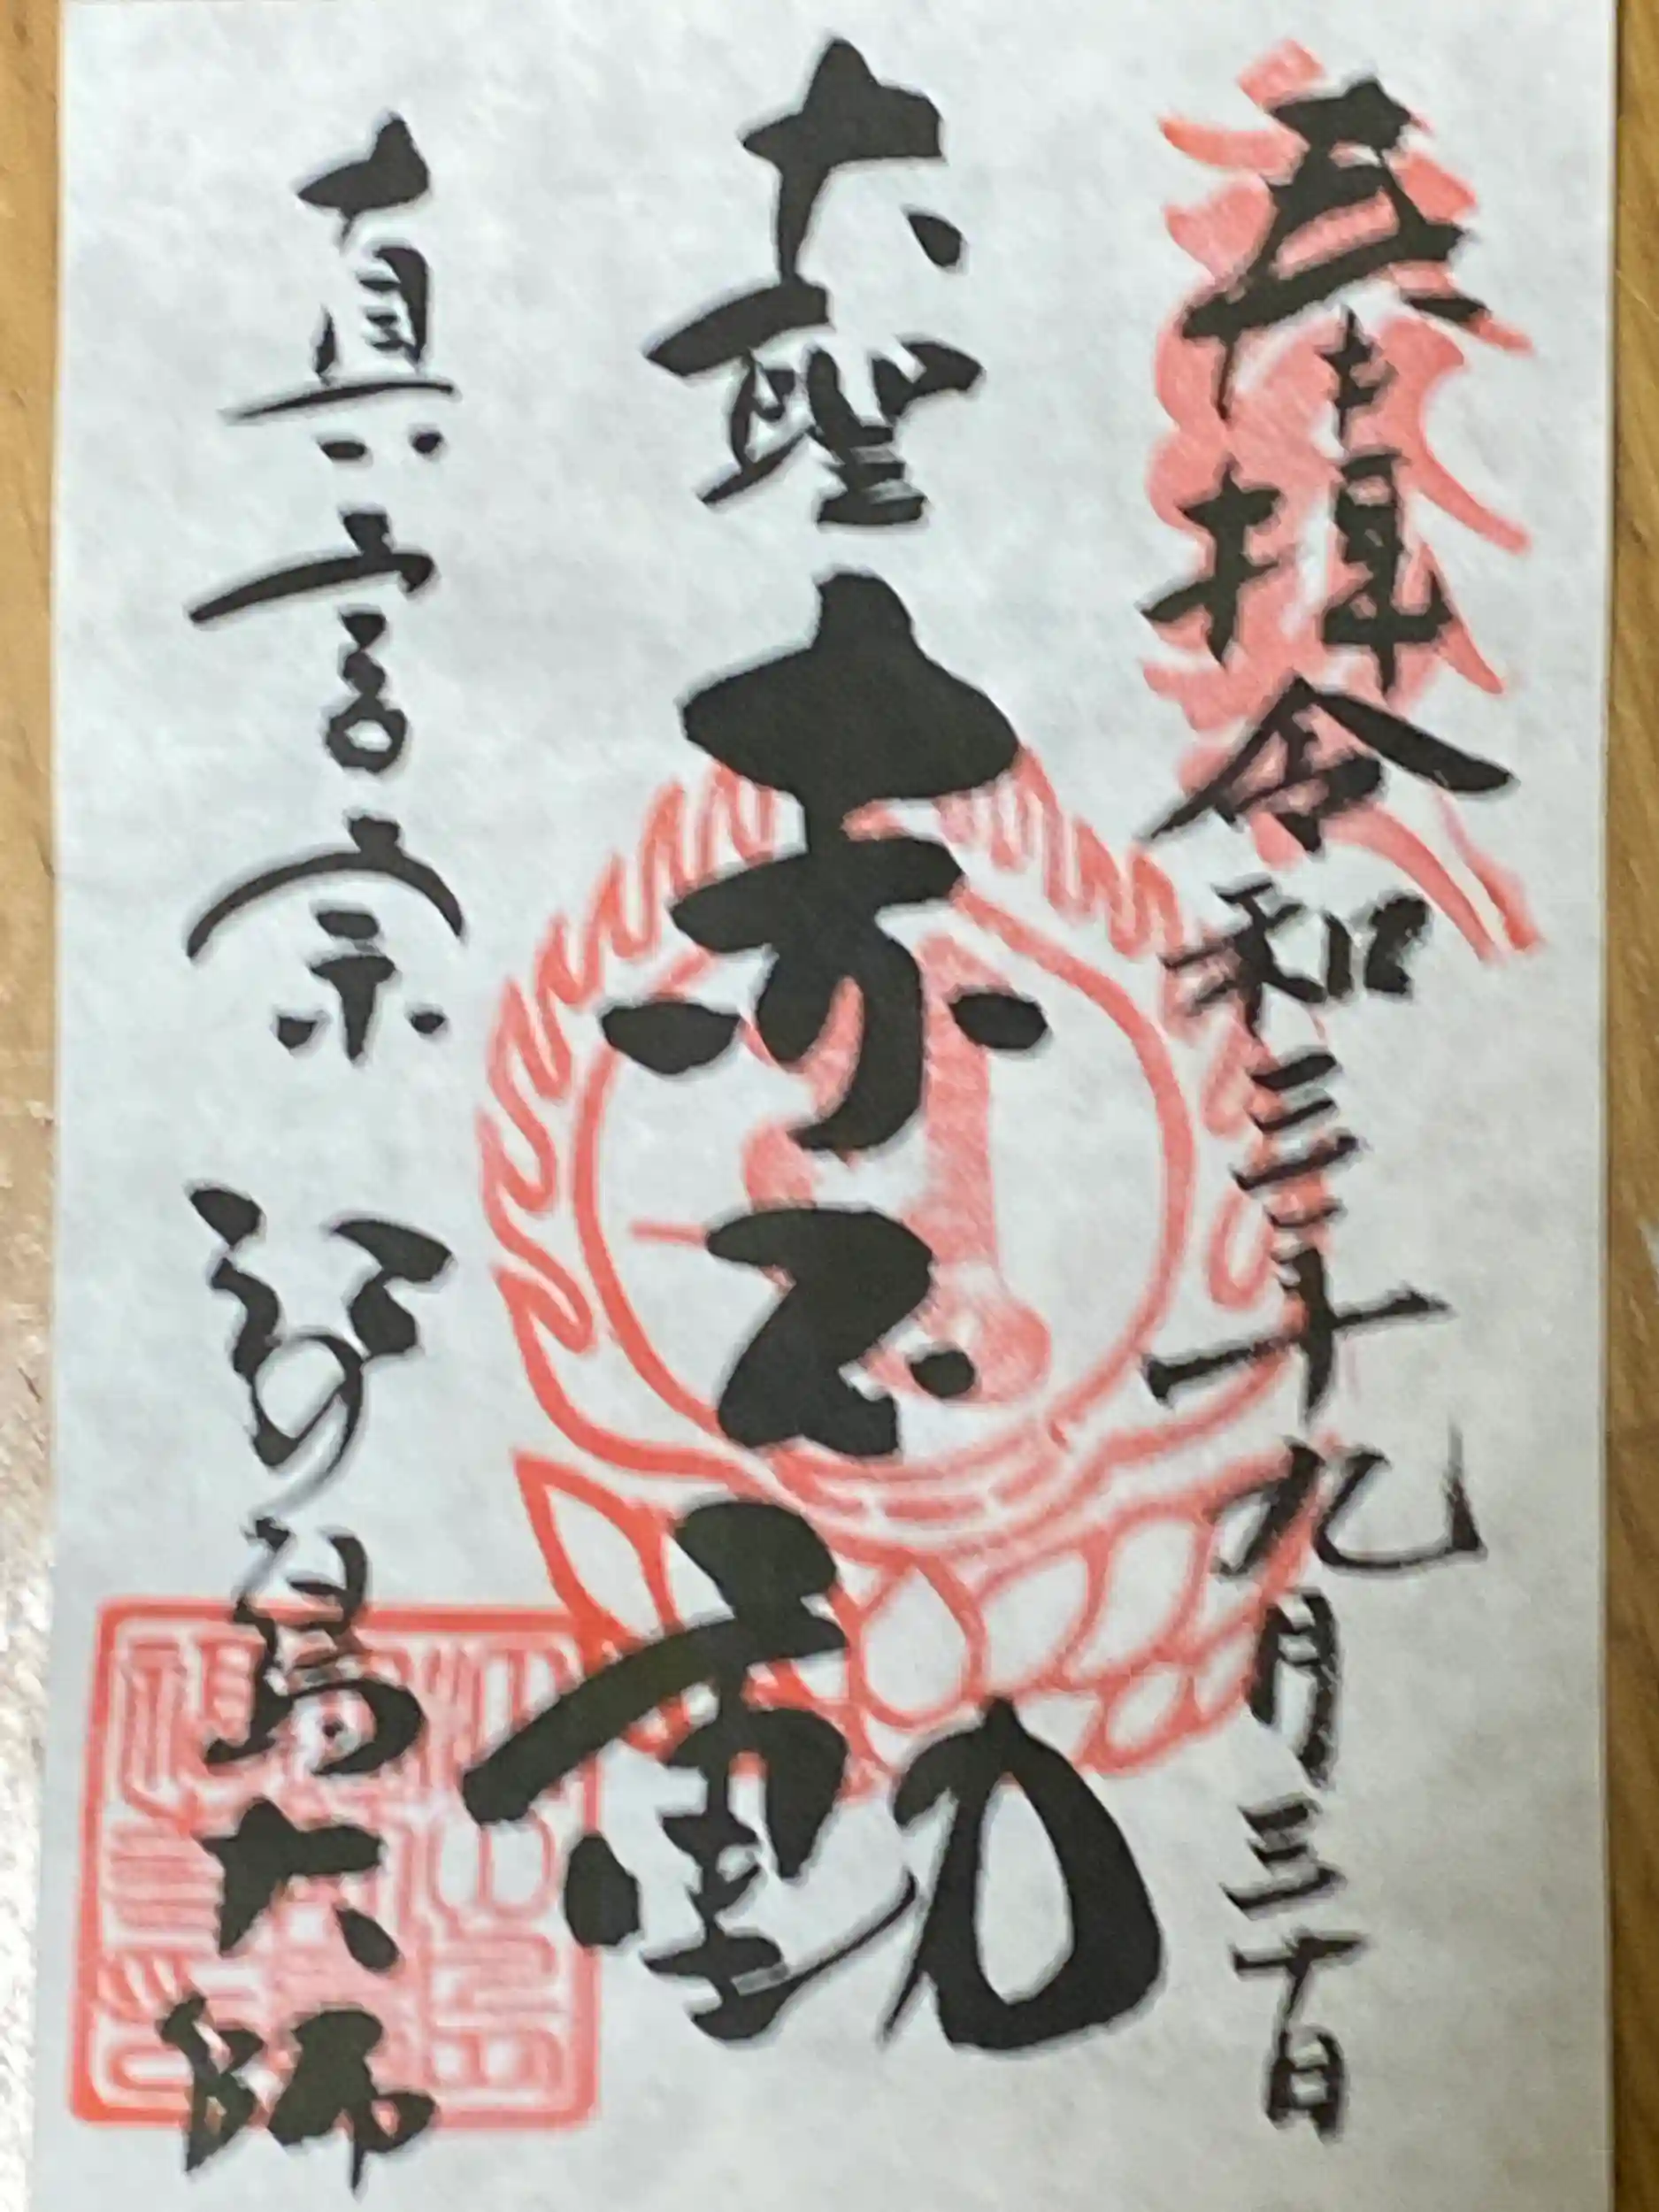 奉拝 令和三年九月三十日
大聖赤不動
真言宗 江の島大師